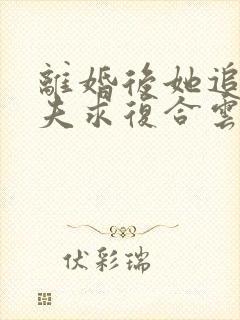 離婚後她追
夫求復合雲
伏彩瑞